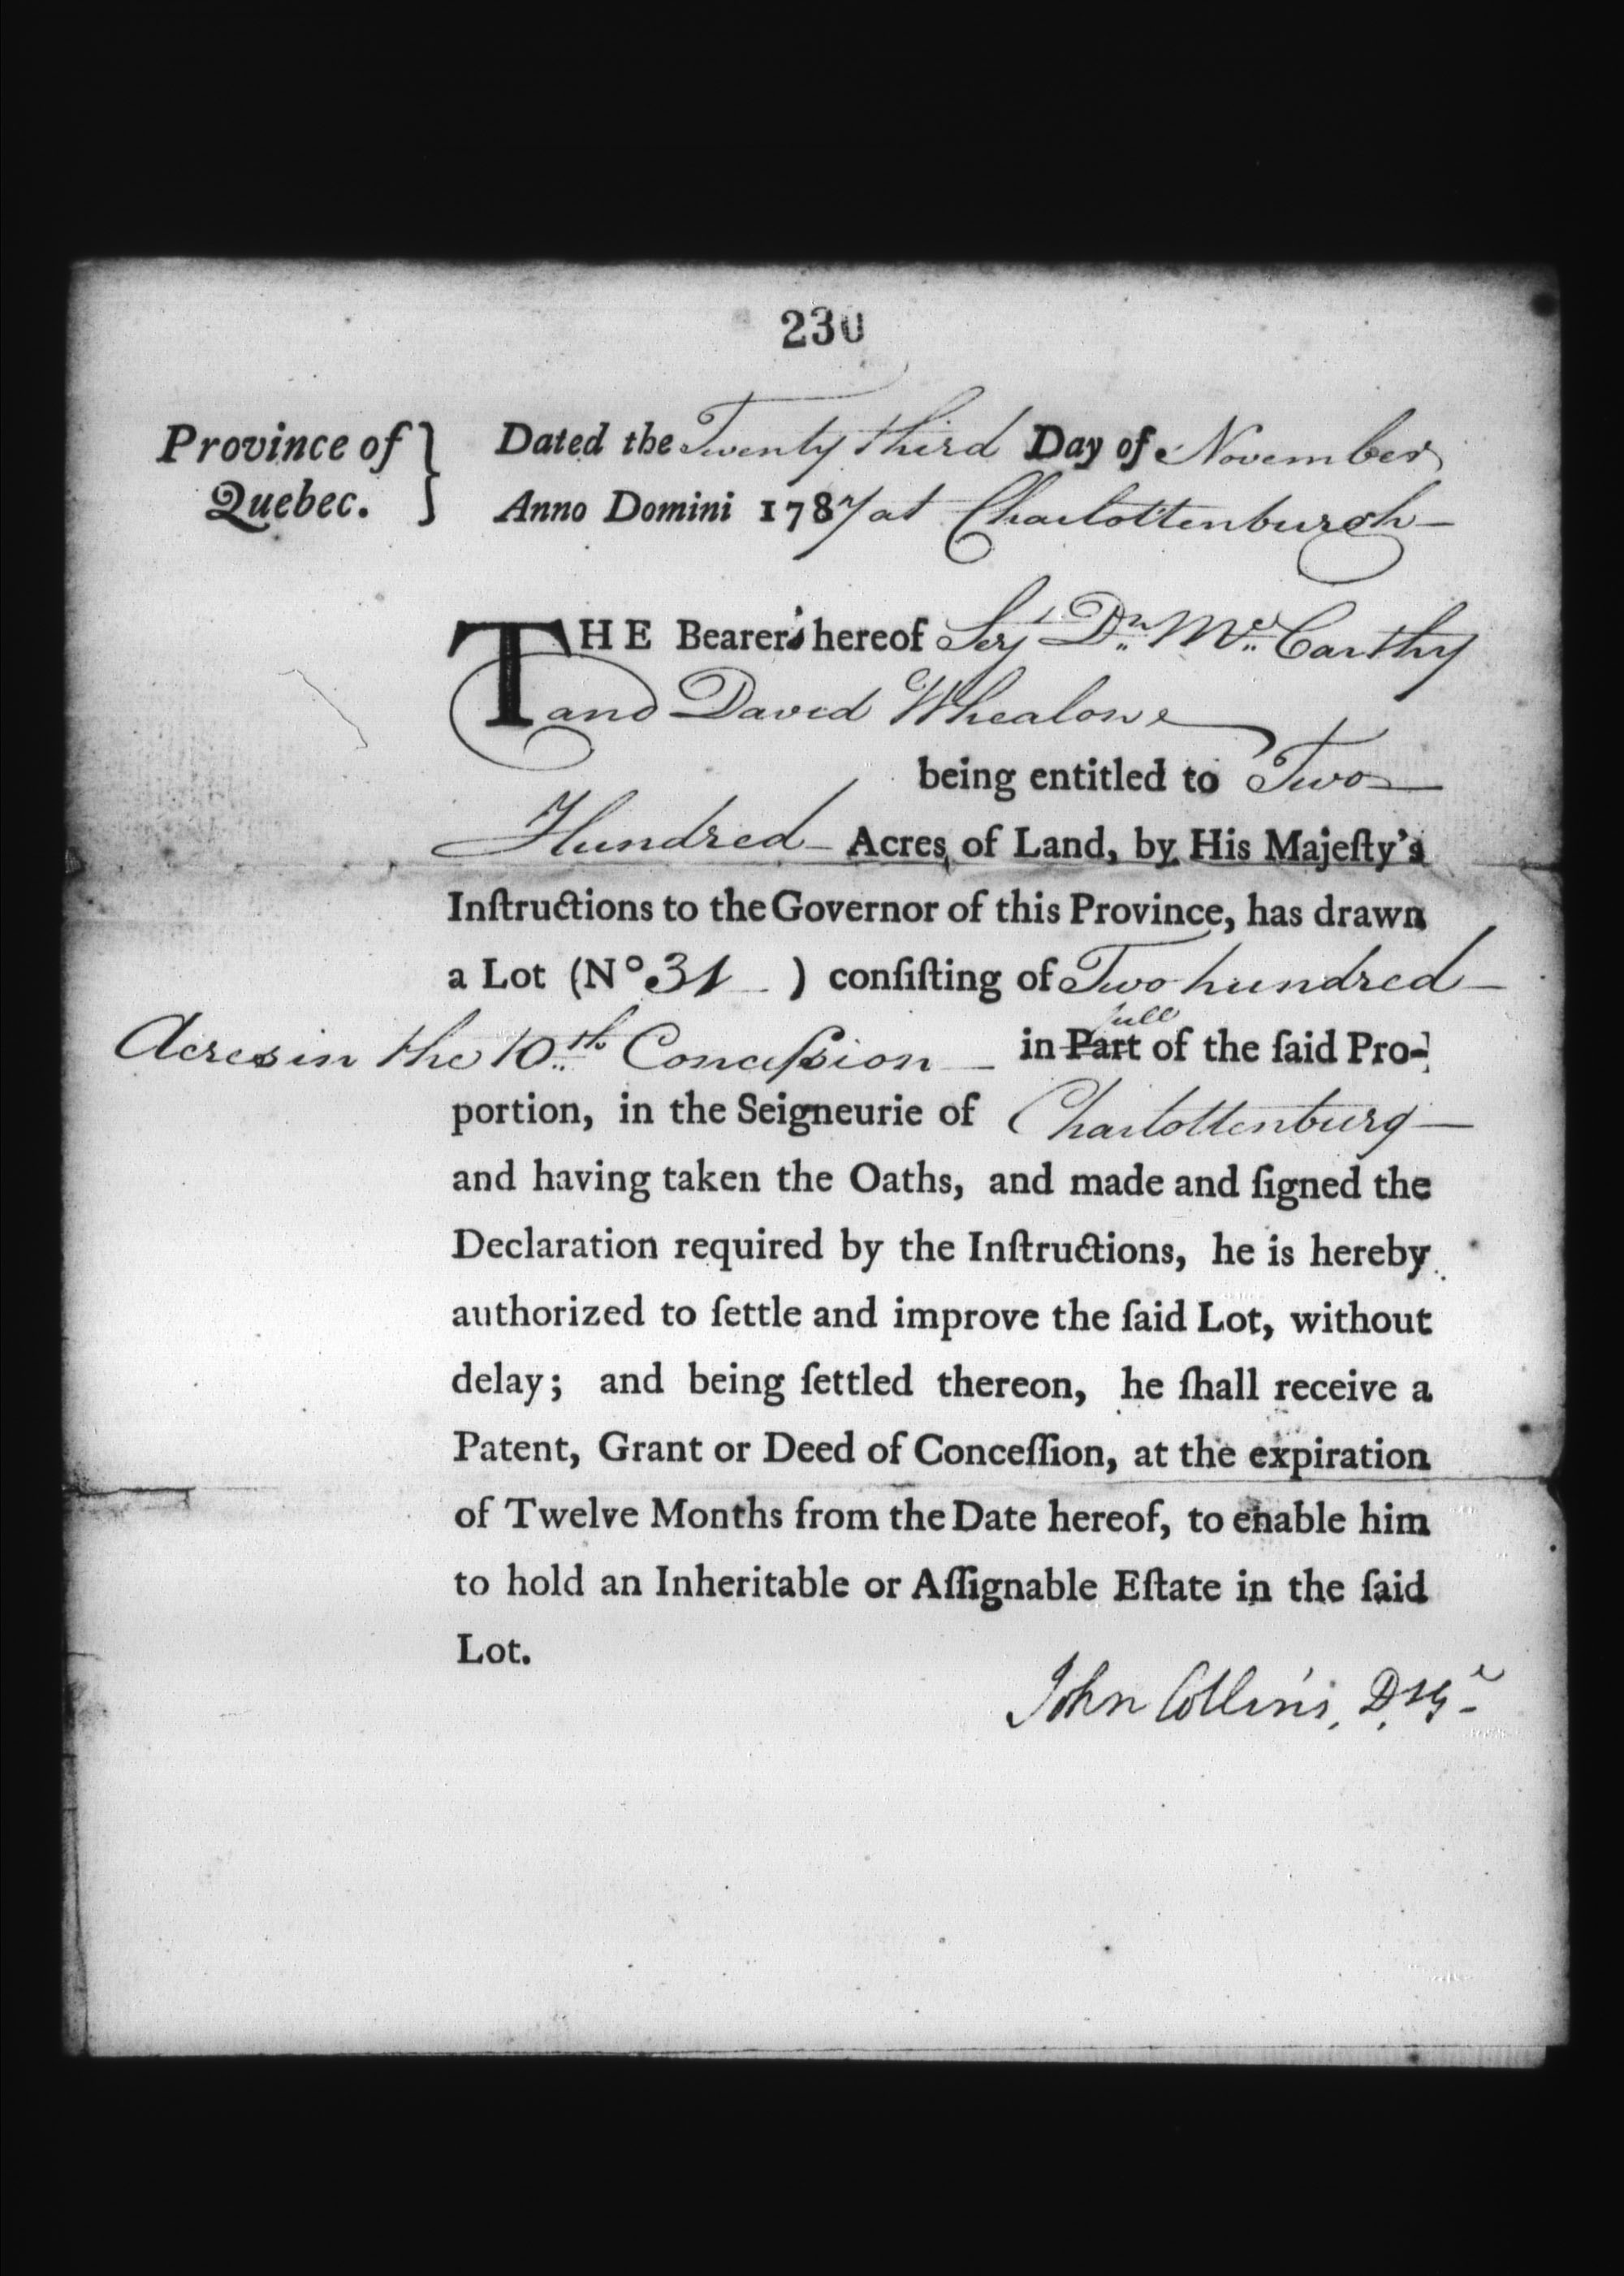 230
Province of } Dated the Twenty third Day of November
Quebec. } Anno Domini 1787 at Charlottenburgh —
THE Bearers hereof Serjt Dn McCarthy
and David Whealone
being entitled to Two —
Hundred — Acres of Land, by His Majeſty's
Inſtructions to the Governor of this Province, has drawn
a Lot (No 31 ) conſiſting of Two hundred —
full
Acres in the 10th Conceſsion — in Part of the ſaid Pro-
portion, in the Seigneurie of Charlottenburg —
and having taken the Oaths, and made and ſigned the
Declaration required by the Inſtructions, he is hereby
authorized to ſettle and improve the ſaid Lot, without
delay; and being ſettled thereon, he ſhall receive a
Patent, Grant or Deed of Conceſſion, at the expiration
of Twelve Months from the Date hereof, to enable him
to hold an Inheritable or Aſſignable Eſtate in the ſaid
Lot.
John Collins,